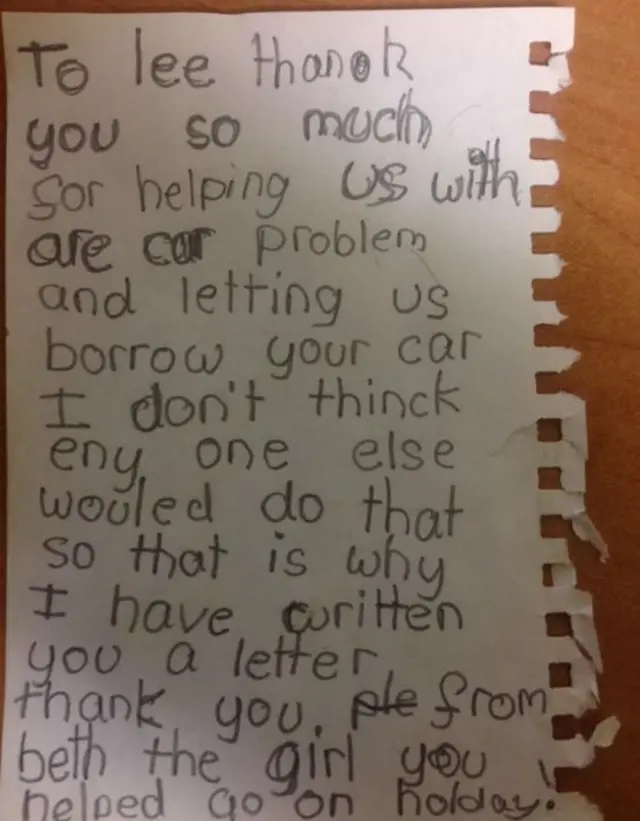 To lee thanok
you so much
for helping us with
are car problem
and letting us
borrow your car
I don't thinck
eny one else
wouled do that
so that is why
I have written
you a letter
thank you. ple from
beth the girl you
helped go on holday!